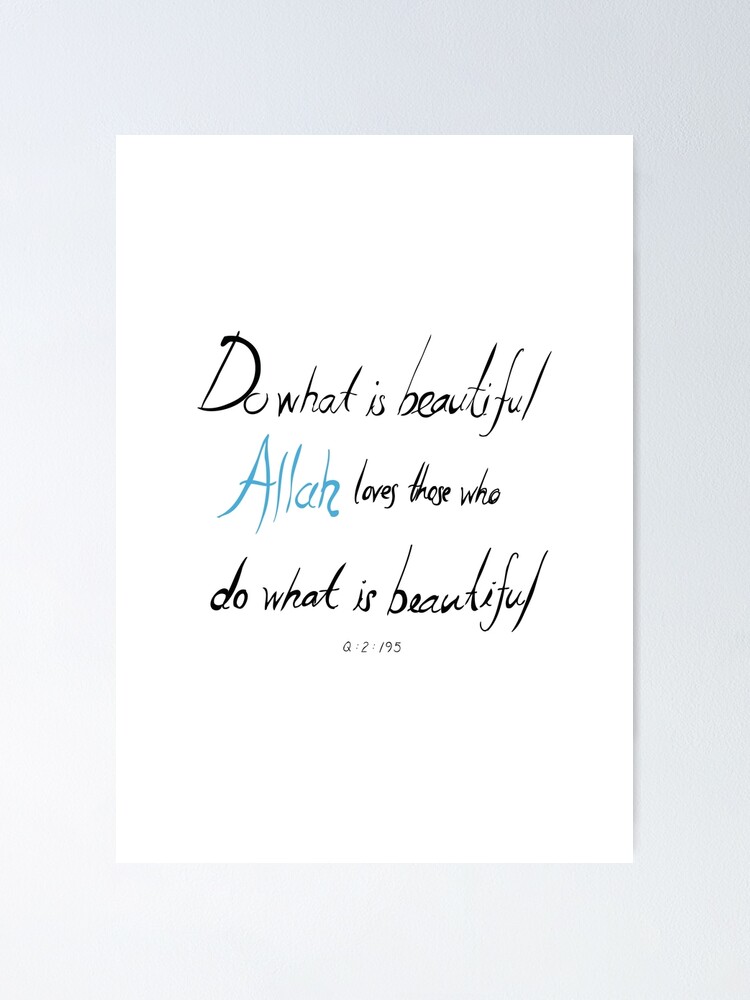 Do what is beautiful
Allah loves those who
do what is beautiful
Q:2:195